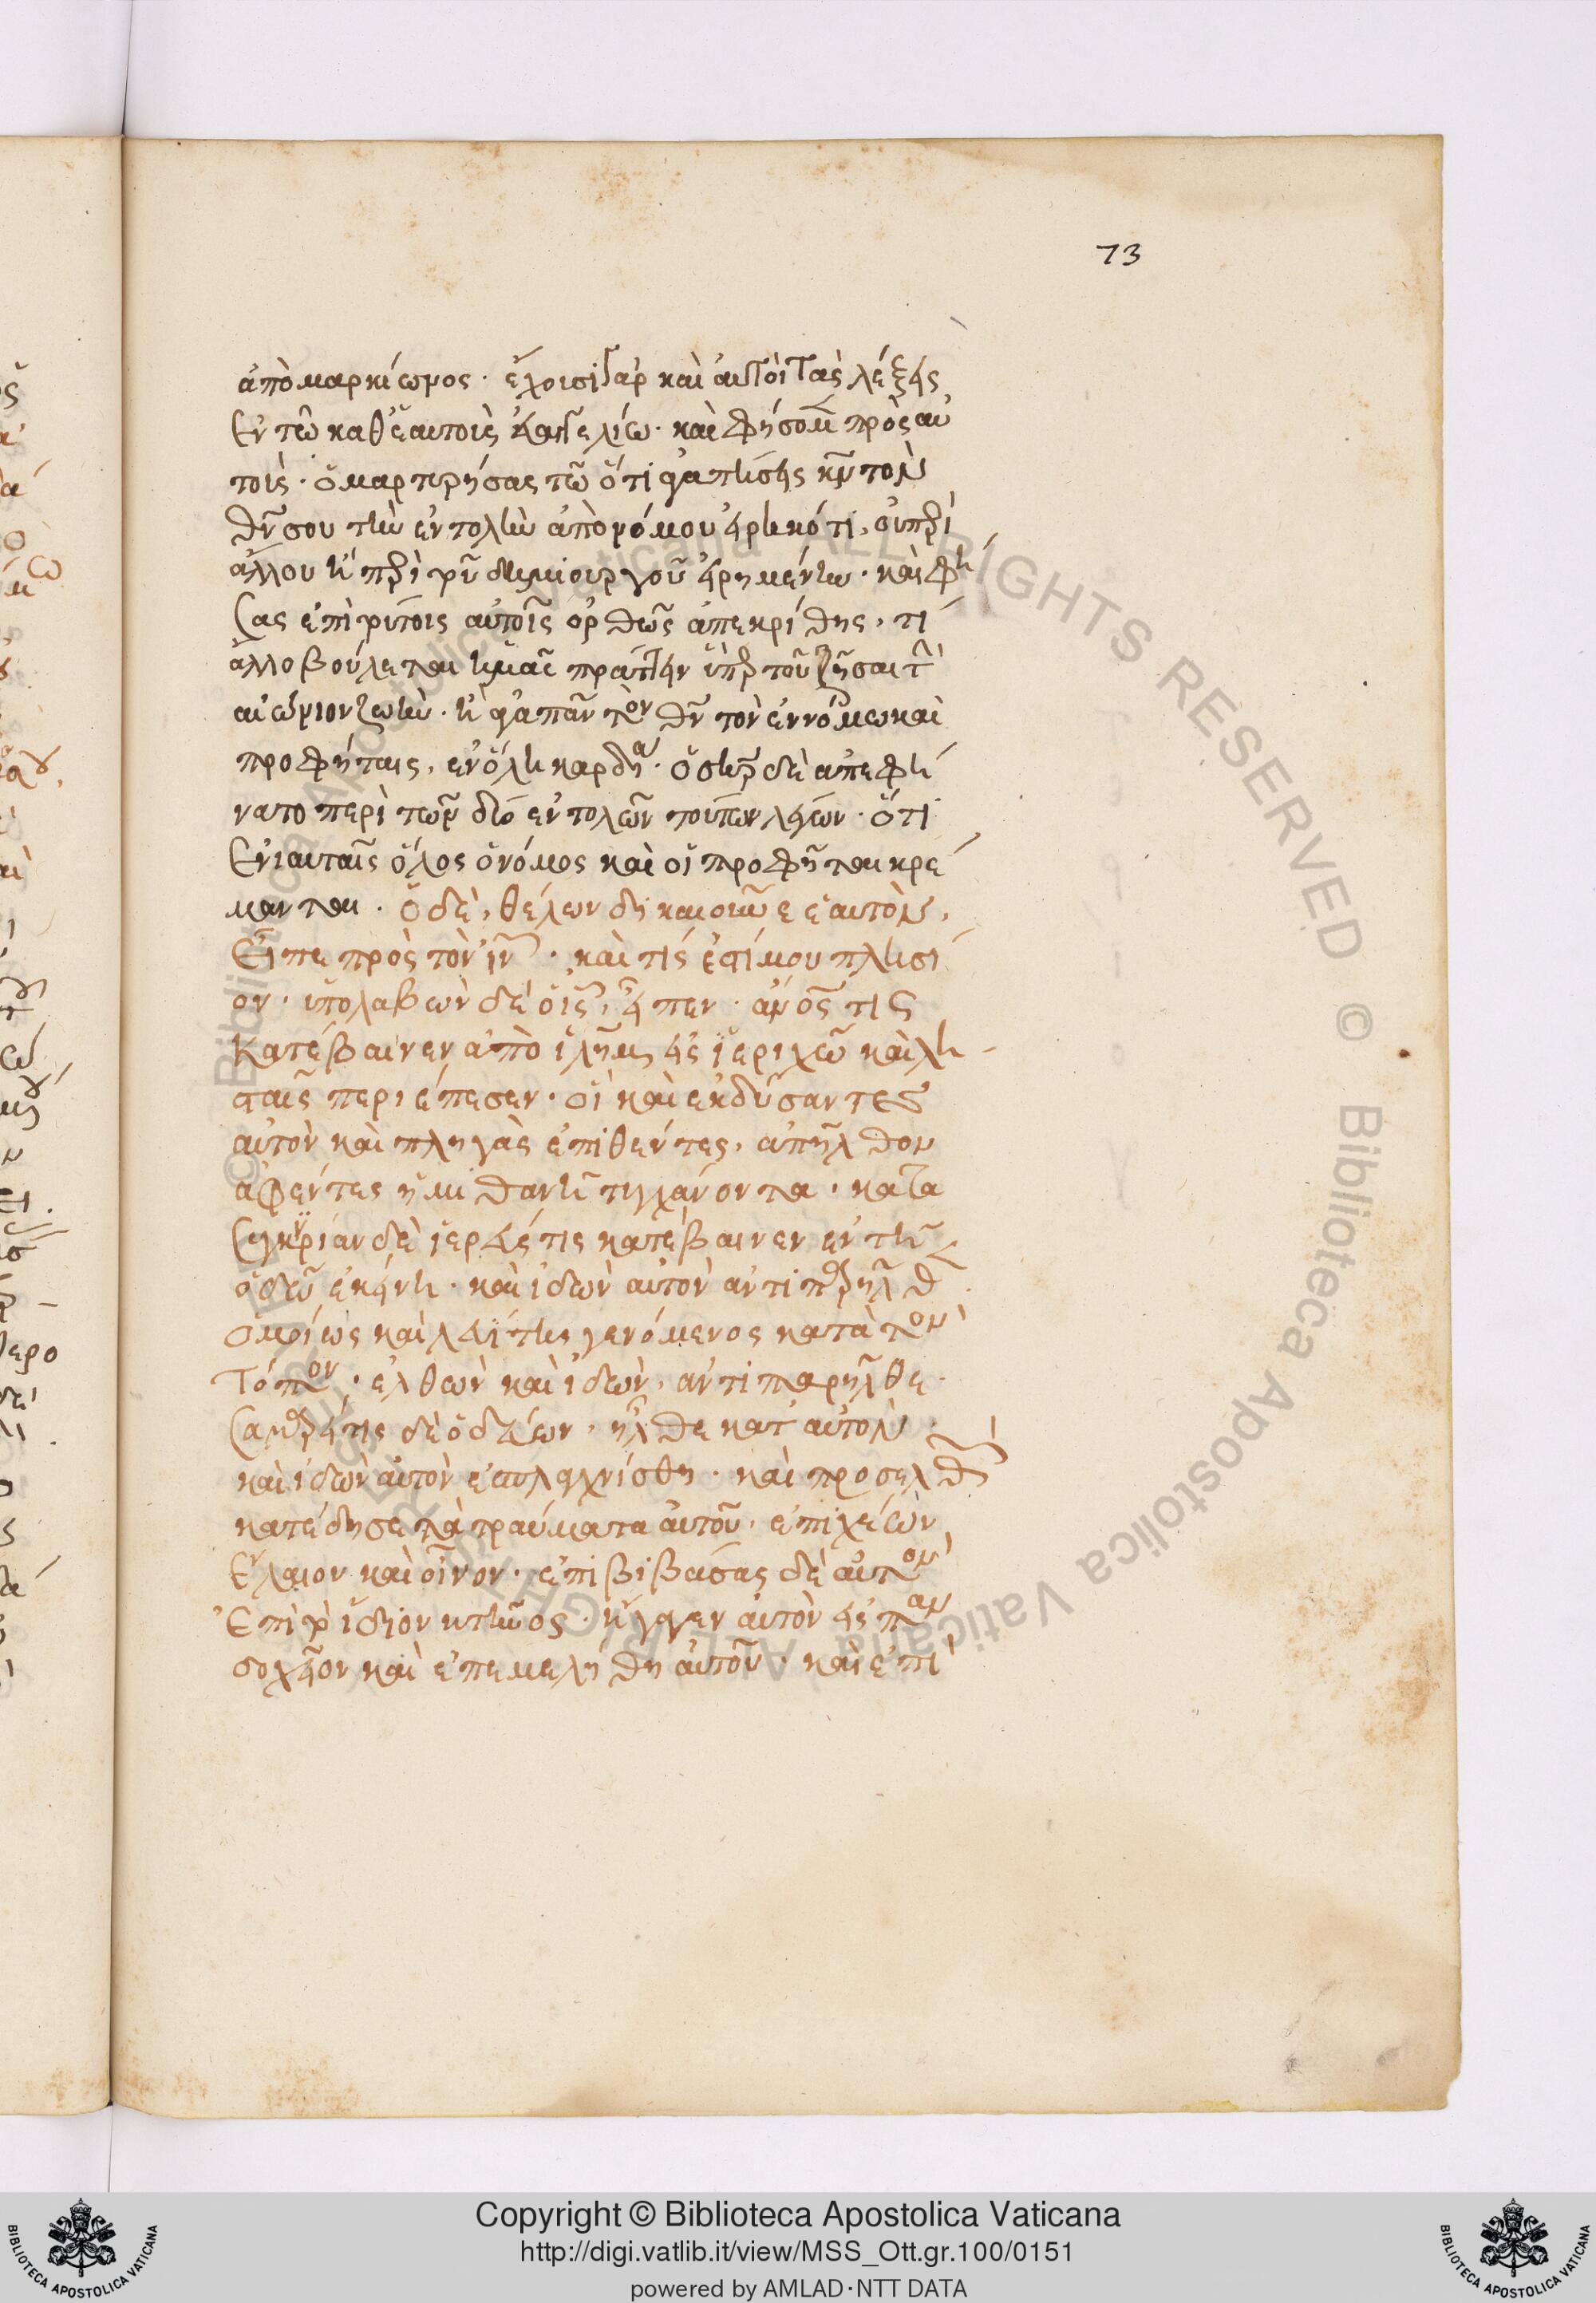 73
ἀπὸ μαρκίωνος· ἔχουσι γὰρ καὶ αὐτοὶ τὰς λέξεις
ἐν τῷ καθ' ἑαυτοὺς εὐαγγελίῳ· καὶ φήσομ πρὸς αὐ
τούς· ὁ μαρτυρήσας τῷ ὅτι ἀγαπήσεις κν τὸν
θν σου τὴν ἐντολὴν ἀπὸ νόμου εἰρηκότι, οὐ περὶ
ἄλλου ἢ περὶ τοῦ δημιουργοῦ εἰρημένην· καὶ φή
σας ἐπὶ τούτοις αὐτοῖς ὀρθῶς ἀπεκρίθης, τί
ἄλλο βούλεται ἡμᾶς πράττειν ὑπὲρ τοῦ ζῆσαι τὴν
αἰώνιον ζωὴν· ἢ ἀγαπᾶν τὸν θν τὸν ἐν νόμω καὶ
προφήταις, ἐν ὅλη καρδία· ὅσπερ δὲ ἀπεφή
νατο περὶ τῶν δύο ἐντολῶν τούτων λέγων· ὅτι
ἐν αυταῖς ὅλος ὁ νόμος καὶ οἱ προφῆται κρέ
μανται· ὁ δὲ, θέλων δικαιοῦν ἑαυτὸν,
εἶπε πρὸς τὸν ιν· καὶ τίς ἐστί μου πλησί
ον· ὑπολαβὼν δὲ ὁ ις, εἶπεν· ανος τις
κατέβαινεν ἀπὸ ιλημ εἰς ἱεριχὼ καὶ λη
σταῖς περιέπεσεν· οἳ καὶ ἐκδύσαντες
αὐτὸν καὶ πληγὰς ἐπιθέντες, ἀπῆλθον
ἀφέντες ἡμιθανῆ τυγχάνοντα· κατα
συγκυρίαν δὲ ἱερεύς τις κατέβαινεν ἐν τῆ
ὁδῷ ἐκείνη· καὶ ἰδὼν αὐτὸν ἀντιπαρῆλθ
ὁμοίως καὶ λευίτης γενόμενος κατὰ τὸν
τόπον· ἐλθὼν καὶ ἰδὼν, ἀντιπαρῆλθε·
σαμαρείτης δὲ ὁδεύων, ἦλθε κατ' αὐτὸν·
καὶ ἰδὼν αὐτὸν ἐσπλαγχνίσθη· καὶ προσελθὼν
κατέδησε τὰ τραύματα αὐτοῦ, ἐπιχέων
ἔλαιον καὶ οἶνον· ἐπιβιβάσας δὲ αὐτὸν
ἐπὶ τὸ ἴδιον κτῆνος· ἤγαγεν αὐτὸν εἰς παν
δοχεῖον καὶ ἐπεμελήθη αὐτοῦ· καὶ ἐπὶ
ALL RIGHTS RESERVED © Biblioteca Apostolica Vaticana
Copyright © Biblioteca Apostolica Vaticana
http://digi.vatlib.it/view/MSS_Ott.gr.100/0151
powered by AMLAD·NTT DATA
BIBLIOTECA APOSTOLICA VATICANA
BIBLIOTECA APOSTOLICA VATICANA